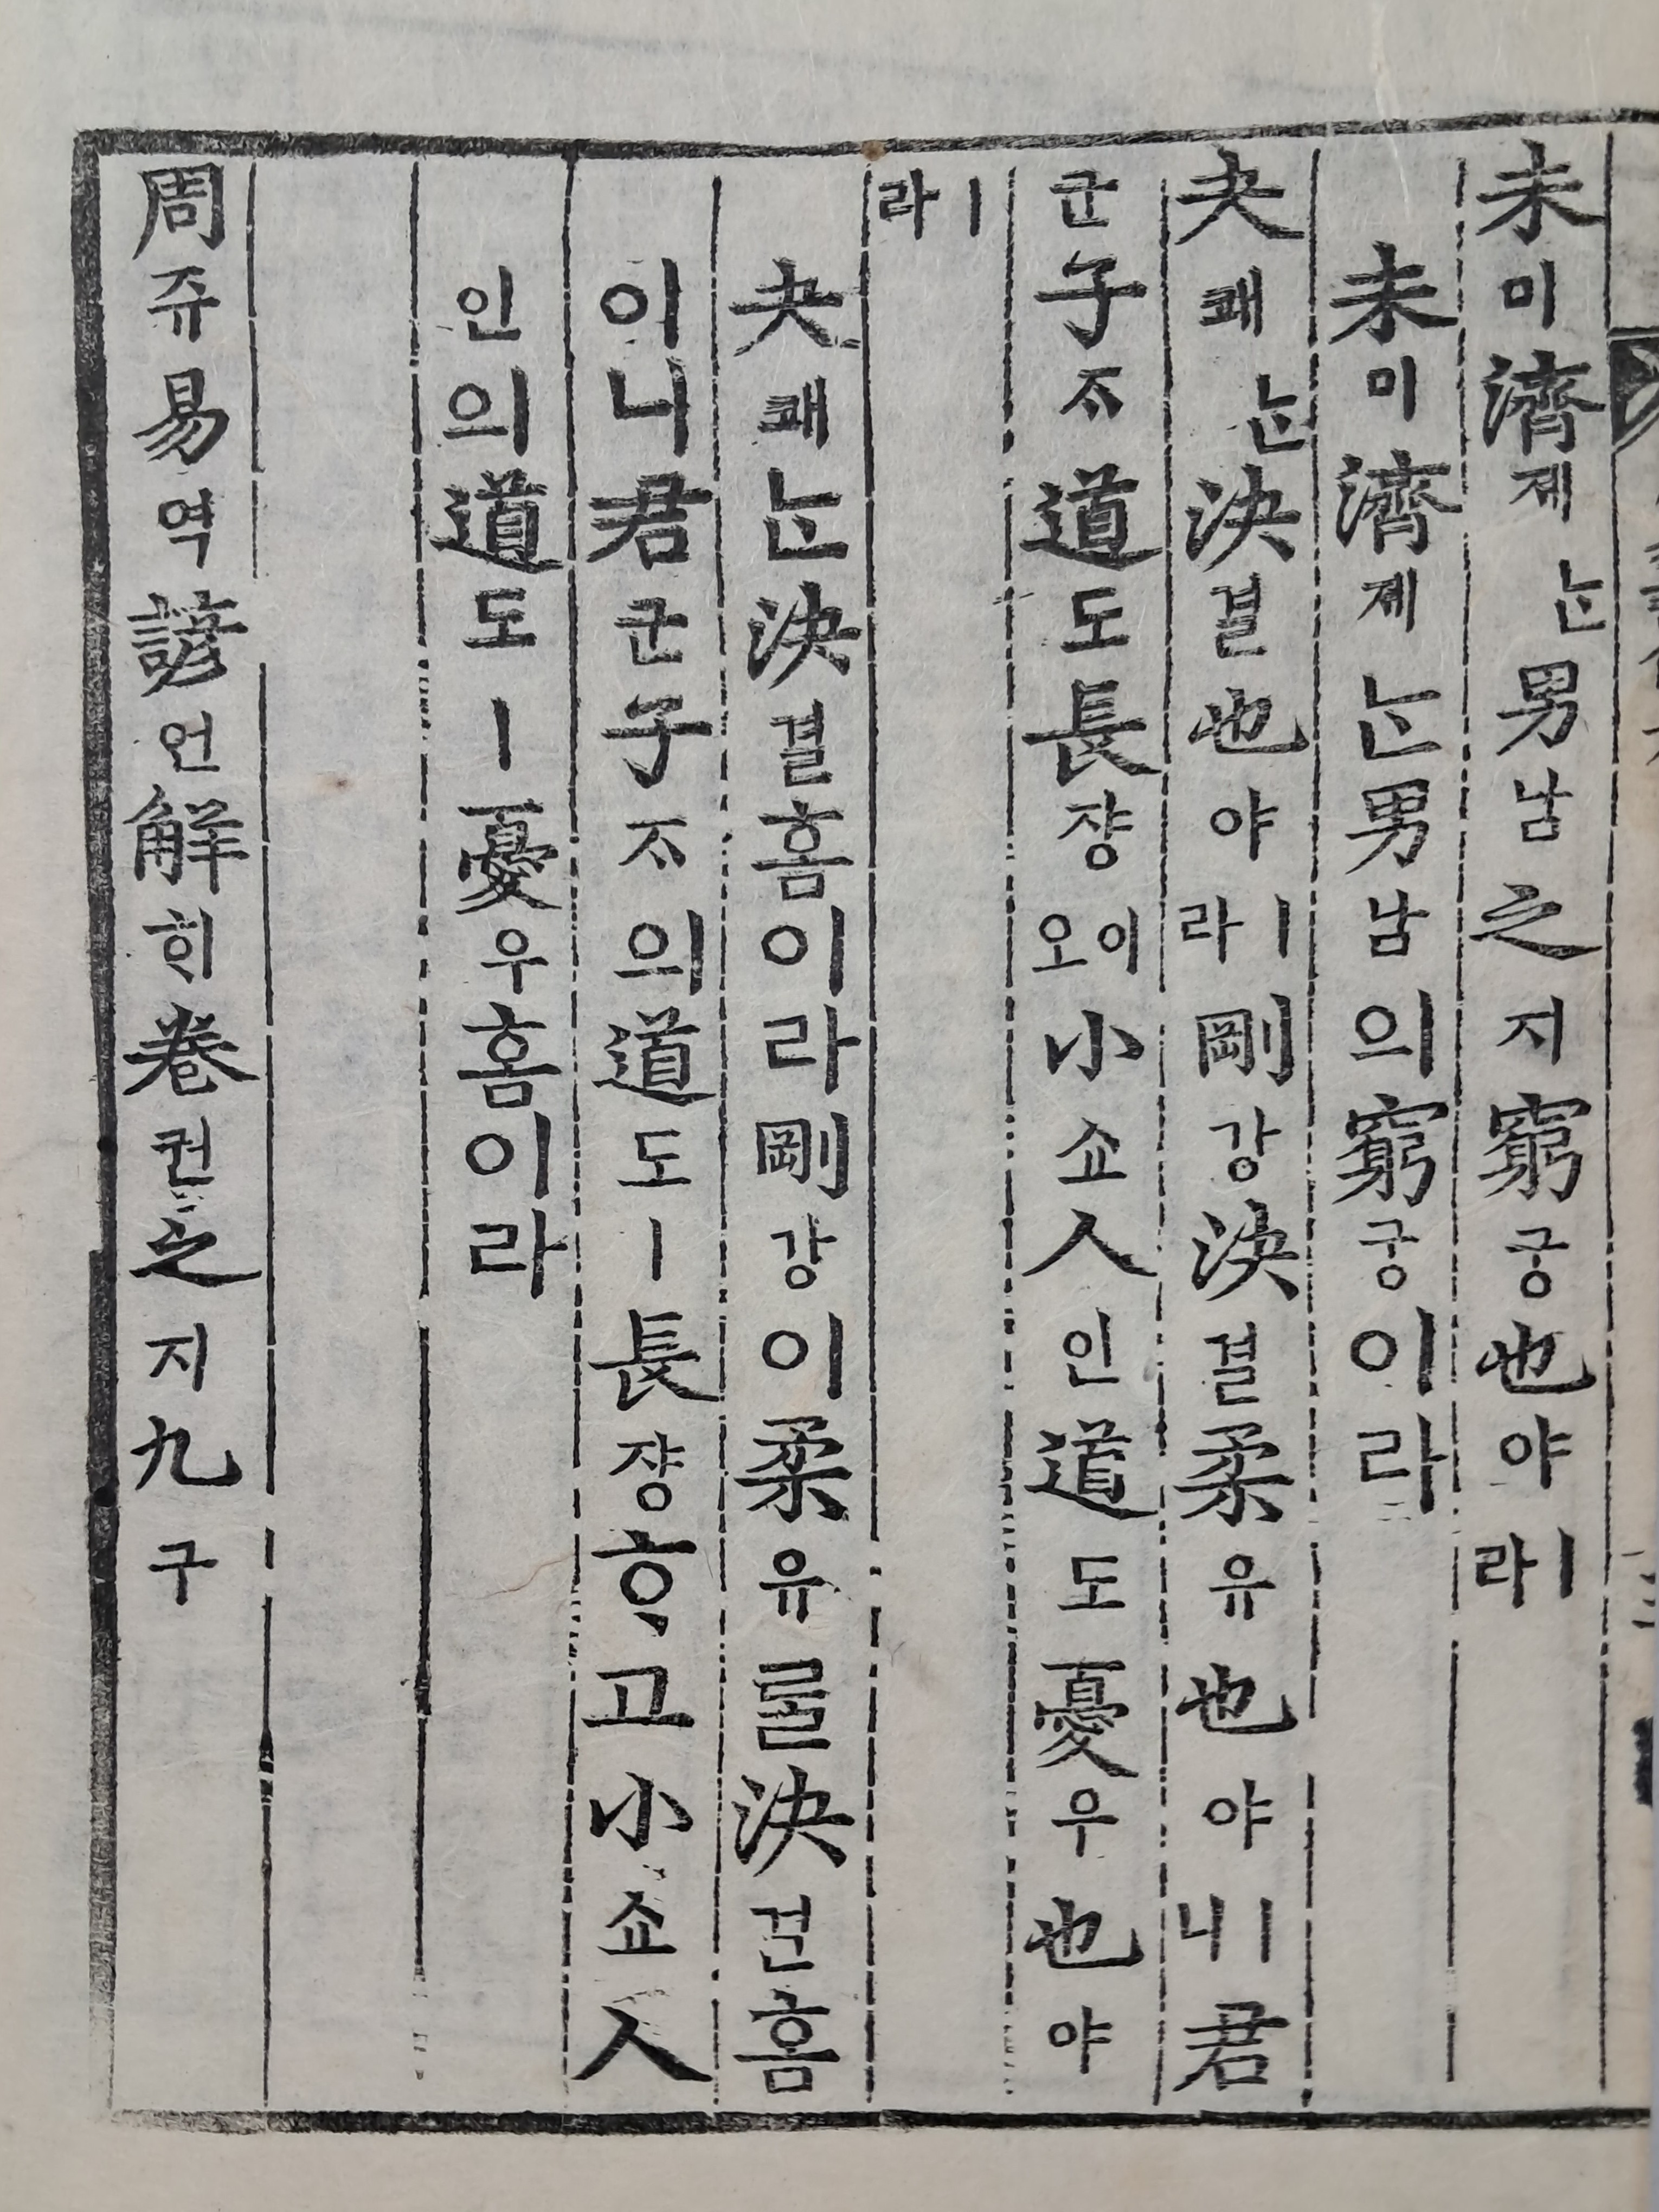 未미濟졔ᄂᆞᆫ男남之지窮궁也야ㅣ라
未미濟졔ᄂᆞᆫ男남의窮궁이라
夬쾌ᄂᆞᆫ決결也야ㅣ라剛강決결柔유也야ㅣ니君
군子ᄌᆞ道도長쟝이오小쇼人인道도憂우也야
ㅣ라
夬쾌ᄂᆞᆫ決결홈이라剛강이柔유ᄅᆞᆯ決결홈
이니君군子ᄌᆞ의道도ㅣ長쟝ᄒᆞ고小쇼人
인의道도ㅣ憂우홈이라
周쥬易역諺언解ᄒᆡ卷권之지九구